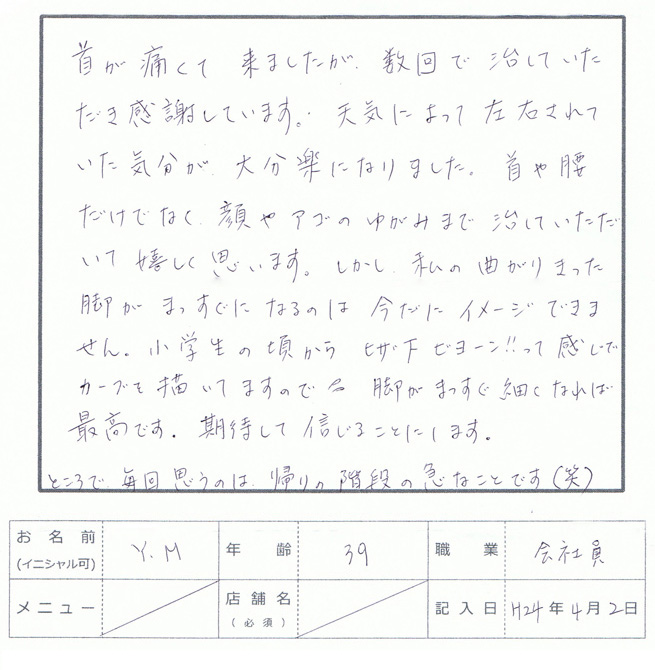 首が痛くて 来ましたが、数回で 治していた
だき感謝しています。天気によって 左右されて
いた気分が、大分楽になりました。首や腰
だけでなく、顔やアゴのゆがみまで 治していただ
いて 嬉しく思います。しかし、私の曲がりきった
脚が まっすぐに なるのは 今だに イメージできま
せん。小学生の頃から ヒザ下 ビヨーン!!って感じで
カーブを描いてますので 脚がまっすぐ細くなれば
最高です。期待して 信じることにします。
ところで、毎回思うのは、帰りの階段の急なことです(笑)
お名前 (イニシャル可) Y.M 年齢 39 職業 会社員
メニュー 店舗名 (必須) 記入日 H24年4月2日